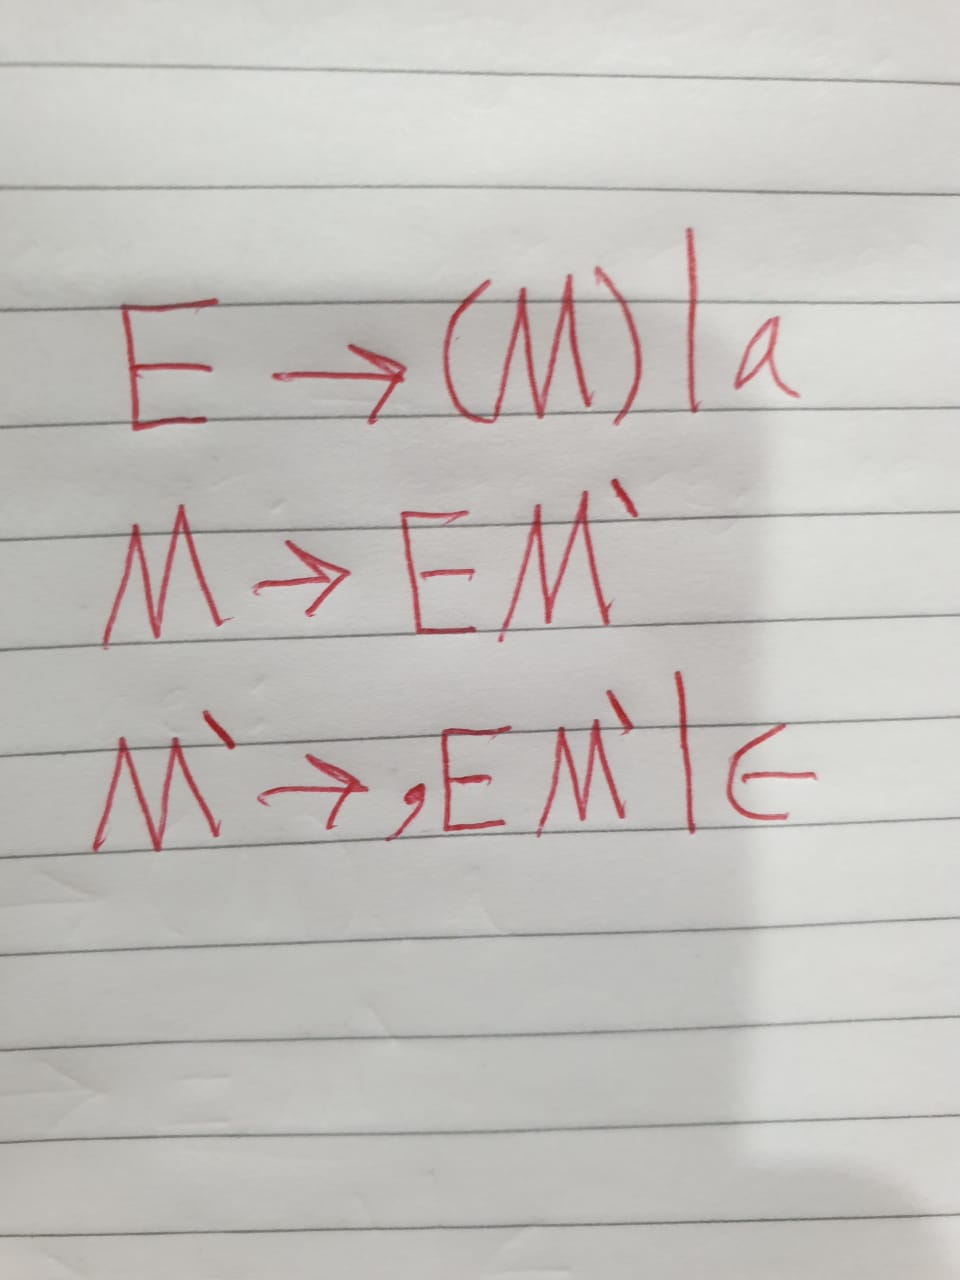 E → (M) | a
M → EM`
M` → ,EM` | ∈